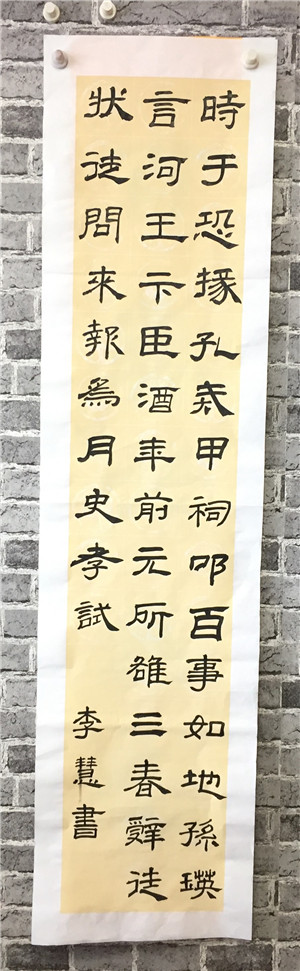 時于恐掾孔甲祠叩百事如地孫瑛
言河王臣酒年前元所雒三春辭徒
狀徒問來報為月史孝試
李慧書